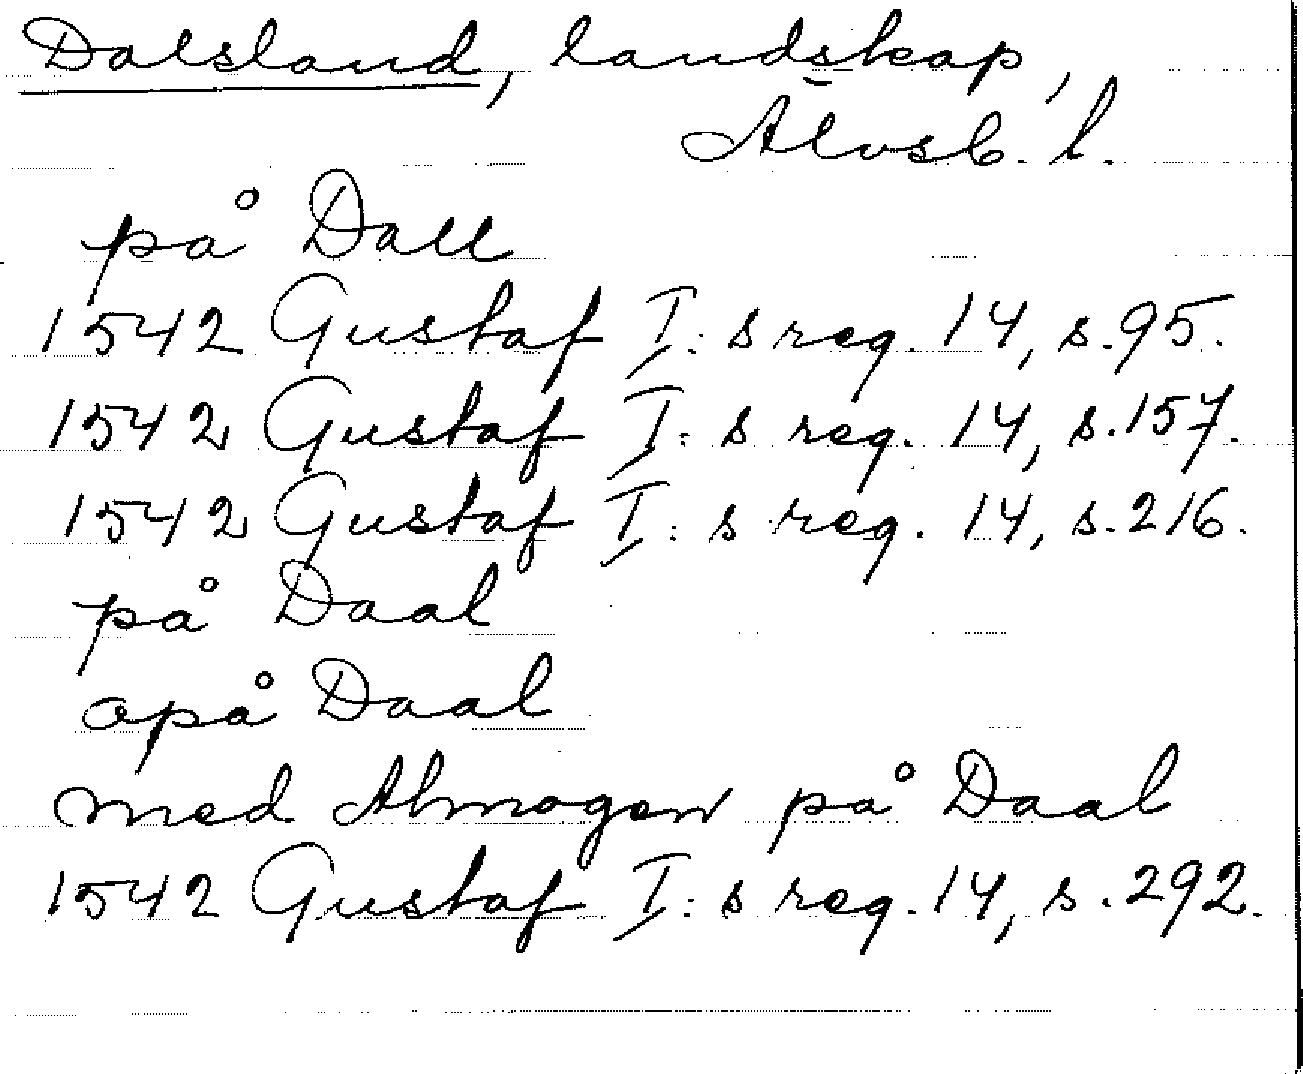 Dalsland, landskap,
Älvsb. l.
på Dall
1542 Gustaf I:s reg. 14, s. 95.
1542 Gustaf I:s reg. 14, s. 157.
1542 Gustaf I:s reg. 14, s. 216.
på Daal
opå Daal
med Almogen på Daal
1542 Gustaf I:s reg. 14, s. 292.